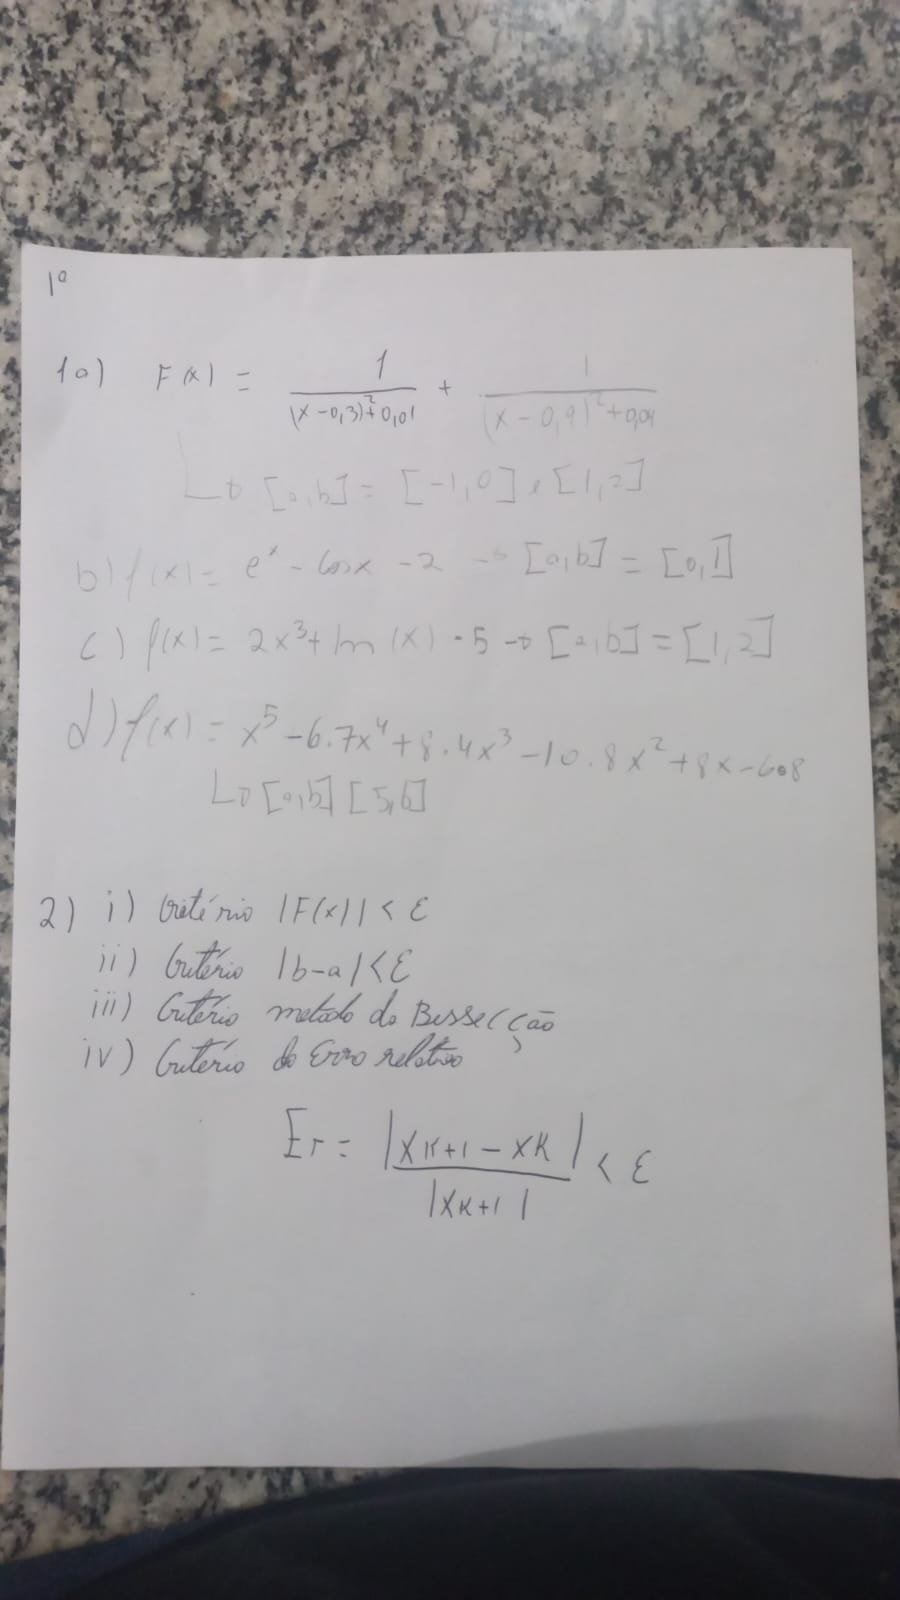 1º
1a) F(x) = 1/((x-0,3)²+0,01) + 1/((x-0,9)²+0,04)
↳ [a,b] = [-1,0] e [1,2]
b) f(x) = eˣ - cosx - 2 → [a,b] = [0,1]
c) f(x) = 2x³ + ln(x) - 5 → [a,b] = [1,2]
d) f(x) = x⁵ - 6.7x⁴ + 8.4x³ - 10.8x² + 8x - 6.8
↳ [a,b] [5,6]
2) i) Critério |F(x)| < ε
ii) Critério |b-a| < ε
iii) Critério metodo da Bissecção
iv) Critério do Erro relativo
Er = |xk+1 - xk| / |xk+1| < ε